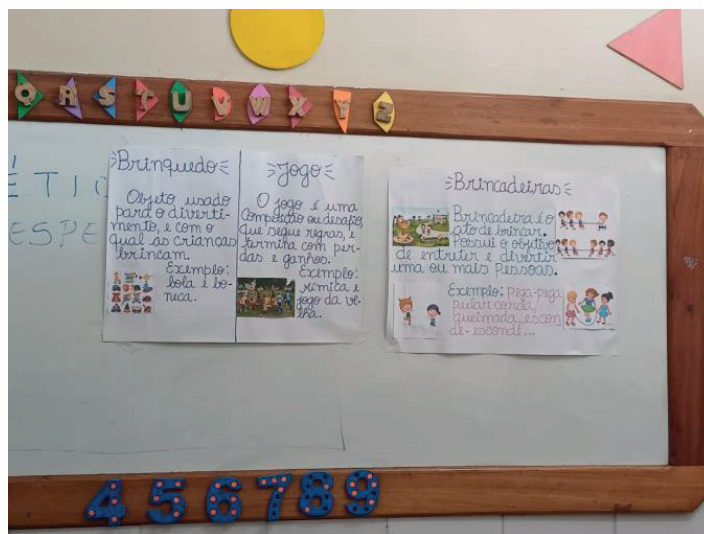 Q R S T U V W X Y Z
ÉTI
ESPE
Brinquedo
Objeto usado
para o diverti-
mento, e com o
qual as crianças
brincam.
Exemplo:
bola e bo-
neca.
Jogo
O jogo é uma
Competição ou desafio,
que segue regras, e
termina com per-
das e ganhos.
Exemplo:
rimita e
jogo da ve-
lha.
Brincadeiras
Brincadeira é o
ato de brincar.
Possui o objetivo
de entreter e divertir
uma ou mais pessoas.
Exemplo: Pega-pega
pular corda,
queimada, escon
de-esconde...
4 5 6 7 8 9